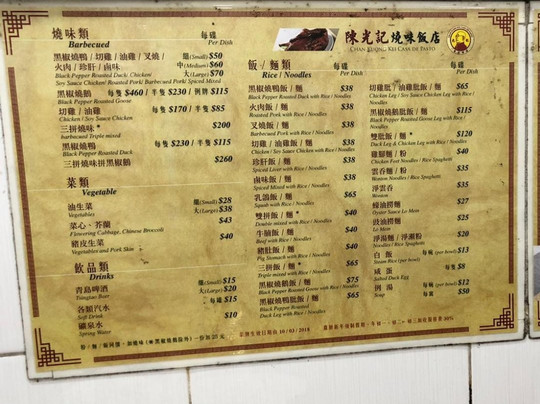 陳光記燒味飯店
CHAN KUONG KEI CASA DE PASTO
燒味類 每碟
Barbecued Per Dish
黑椒燒鴨 / 切雞 / 油雞 / 叉燒 / 細(Small) $50
火肉 / 珍肝 / 鹵味 中(Medium) $60
Black Pepper Roasted Duck/ Chicken/ 大(Large) $70
Soy Sauce Chicken/ Roasted Pork/ Barbecued Pork/ Spiced Mixed
黑椒燒鵝 每隻 $460 / 半隻 $230 / 例牌 $115
Black Pepper Roasted Goose
切雞 / 油雞 每隻 $170 / 半隻 $85
Chicken / Soy Sauce Chicken
三拼燒味* $200
barbecued Triple mixed
黑椒燒鴨 每隻 $230 / 半隻 $115
Black Pepper Roasted Duck
三拼燒味拼黑椒鵝 $260
菜類
Vegetable
油生菜 細(Small) $28
Vegetables 大(Large) $38
菜心、芥蘭 $43
Flowering Cabbage, Chinese Broccoli
豬皮生菜 $40
Vegetables and Pork Skin
飲品類
Drinks
青島啤酒 細(Small) $15
Tsingtao Beer 大(Large) $20
各類汽水 每罐 $15
Soft Drink
礦泉水 $10
Spring Water
飯 / 麵類 每碟
Rice / Noodles Per Dish
黑椒燒鴨飯 / 麵 $38
Black Pepper Roasted Duck with Rice / Noodles
火肉飯 / 麵 $38
Roasted Pork with Rice / Noodles
叉燒飯 / 麵 $38
Barbecued Pork with Rice / Noodles
切雞 / 油雞飯 / 麵 $38
Chicken / Soy Sauce Chicken with Rice / Noodles
珍肝飯 / 麵 $38
Spiced Liver with Rice / Noodles
鹵味飯 / 麵 $38
Spiced Mixed with Rice / Noodles
乳鴿飯 / 麵 $65
Squab with Rice / Noodles
雙拼飯 / 麵 * $40
Double mixed with Rice / Noodles
牛腩飯 / 麵 $40
Beef with Rice / Noodles
豬肚飯 / 麵 $40
Pig Stomach with Rice / Noodles
三拼飯 / 麵 * $65
Triple mixed with Rice / Noodles
黑椒燒鵝飯 / 麵 $75
Black Pepper Roasted Goose with Rice / Noodles
黑椒燒鴨肶飯 / 麵 $65
Black Pepper Roasted
Duck Leg with Rice / Noodles
每碟
Per Dish
切雞肶 / 油雞肶飯 / 麵 $65
Chicken Leg / Soy Sauce Chicken Leg with Rice / Noodles
黑椒燒鵝肶飯 / 麵 $115
Black Pepper Roasted Goose Leg with Rice / Noodles
雙肶飯 / 麵 * $120
Duck Leg & Chicken Leg with Rice / Noodles
雞腳麵 / 粉 $40
Chicken Feet Noodles / Rice Spaghetti
雲吞麵 / 粉 $35
Wonton Noodles / Rice Spaghetti
淨雲吞 $35
Wonton
蠔油撈麵 $27
Oyster Sauce Lo Mein
豉油撈麵 $25
Lo Mein
淨湯麵 / 淨瀨粉 $20
Noodles / Rice Spaghetti
白飯 每碗(per bowl) $13
Steam Rice (per bowl)
咸蛋 每隻 $8
Salted Duck Egg
例湯 每碗(per bowl) $12
Soup 每窩 $50